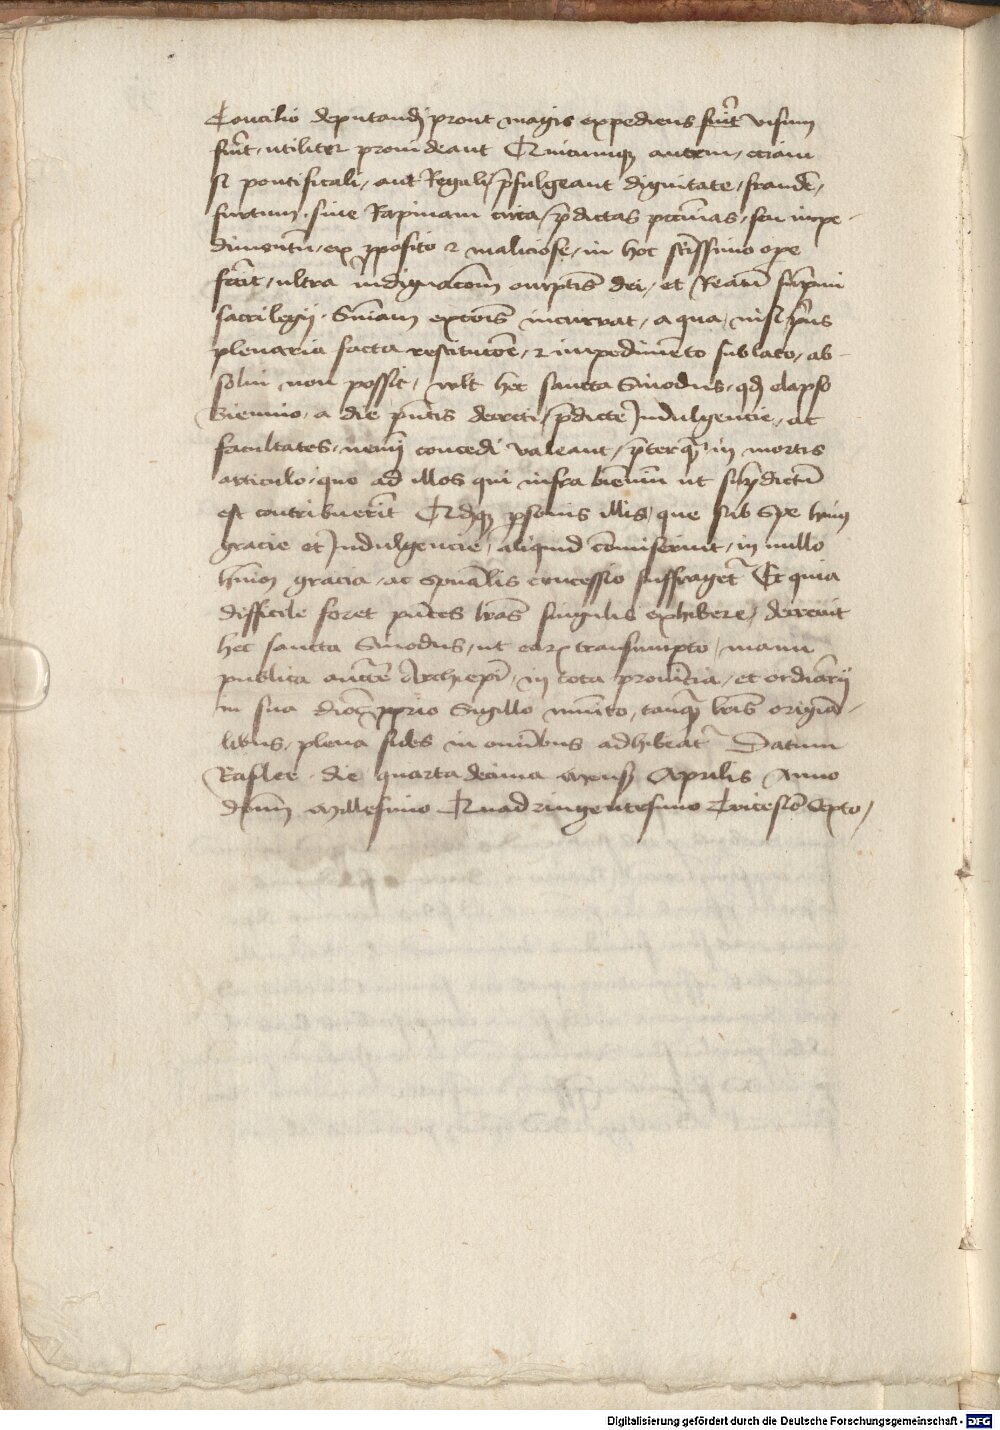 Concilio deputandi prout magis expediens fuit̄ visum
fuit̄, utiliter provideant Quicumqꝫ autem, eciam
si pontificali, aut Regali p̄fulgeant dignitate, fraudē,
furtum, sive Rapinam circa p̄dictas pecūias, seu inpe-
dimentū, ex ꝓposito ⁊ maliciose, in hoc sc̄issimo ope
fecit̄, ultra indignacōm omīptīs dei, et Reatū
sacrilegij. Sniam excōis incurrat, a qua, nisi p̄us
plenaria facta restitucōe, ⁊ impedimēto sublato, ab-
solvi non possit, vult hec sancta Sinodus, qd elapso
Biennio, a die pn̄tis decreti, p̄dicte Indulgencie, ac
facultates, nemī concedi valeant, p̄terqꝫ in mortis
articulo, que ad illos qui infra bieniū ut sup̄dictū
est contribuerīt Adqꝫ ꝑsonis illis, que sub Spe huiꝰ
gracie et Indulgencie, aliquid cōmiserint, in nullo
huiꝰ gracia, ac Spūalis concessio suffraget᷑ Et quia
difficile foret pn̄tes lrās singulis exhibere, decrevit
hec sancta Sinodus, ut earꝝ transumpto, manu
publica auctē Archiepī, in tota provīcia, et ordinārij
in sua dioc̄ ꝓprio Sigillo munito, tanqꝫ lrīs originā-
libus, plena fides in omībus adhibeat᷑ Datum
Basilee. die quarta decima mensꝭ Aprilis Anno
dnīm Millesimo Quadringentesimo Tricesiō Septo,
Digitalisierung gefördert durch die Deutsche Forschungsgemeinschaft - DFG